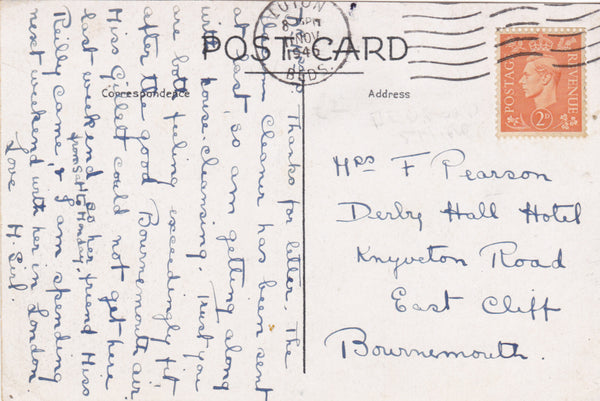 LUTON
BEDS.
NOV
POST CARD
Correspondence
Address
POSTAGE
REVENUE
2D
Thanks for letter. The
cleaner has been sent
at last, so am getting along
with house-cleansing. Trust you
are both feeling exceedingly fit
after the good Bournemouth air.
Miss Gillett could not get here
last weekend, so her friend Miss
from Sat to Monday,
Reilly came, & I am spending
next weekend with her in London.
Love
Mrs F Pearson
Derby Hall Hotel
Knyveton Road
East Cliff
Bournemouth.